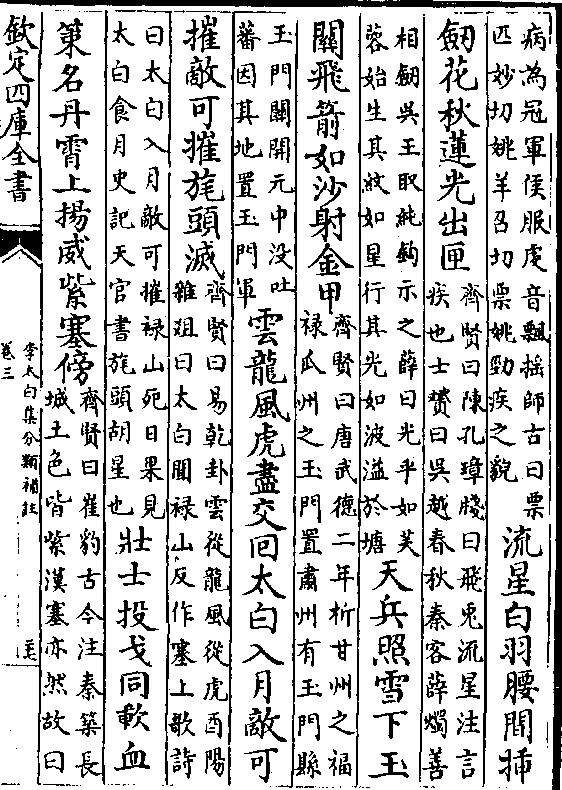 病為冠軍侯服䖍音飄揺師古曰票
匹妙切姚羊召切票姚勁疾之貌
流星白羽腰間揷
劒花秋蓮光出匣
齊賢曰陳孔璋牋曰飛兎流星注言
疾也士贇曰吳越春秋秦客薛燭善
相劒吳王取純鈎示之薛曰光乎如芙
蓉始生其紋如星行其光如波溢於塘
天兵照雪下玉
關飛箭如沙射金甲
齊賢曰唐武德二年析甘州之福
禄瓜州之玉門置肅州有玉門縣
玉門關開元中没吐
蕃因其地置玉門軍
雲龍風虎盡交回太白入月敵可
摧敵可摧旄頭滅
齊賢曰易乾卦雲從龍風從虎酉陽
雜俎曰太白聞禄山反作塞上歌詩
曰太白入月敵可摧禄山死日果見
太白食月史記天官書旄頭胡星也
壯士投戈同歃血
策名丹霄上揚威紫塞傍
齊賢曰崔豹古今注秦築長
城土色皆紫漢塞亦然故曰
欽定四庫全書
李太白集分類補註
卷三